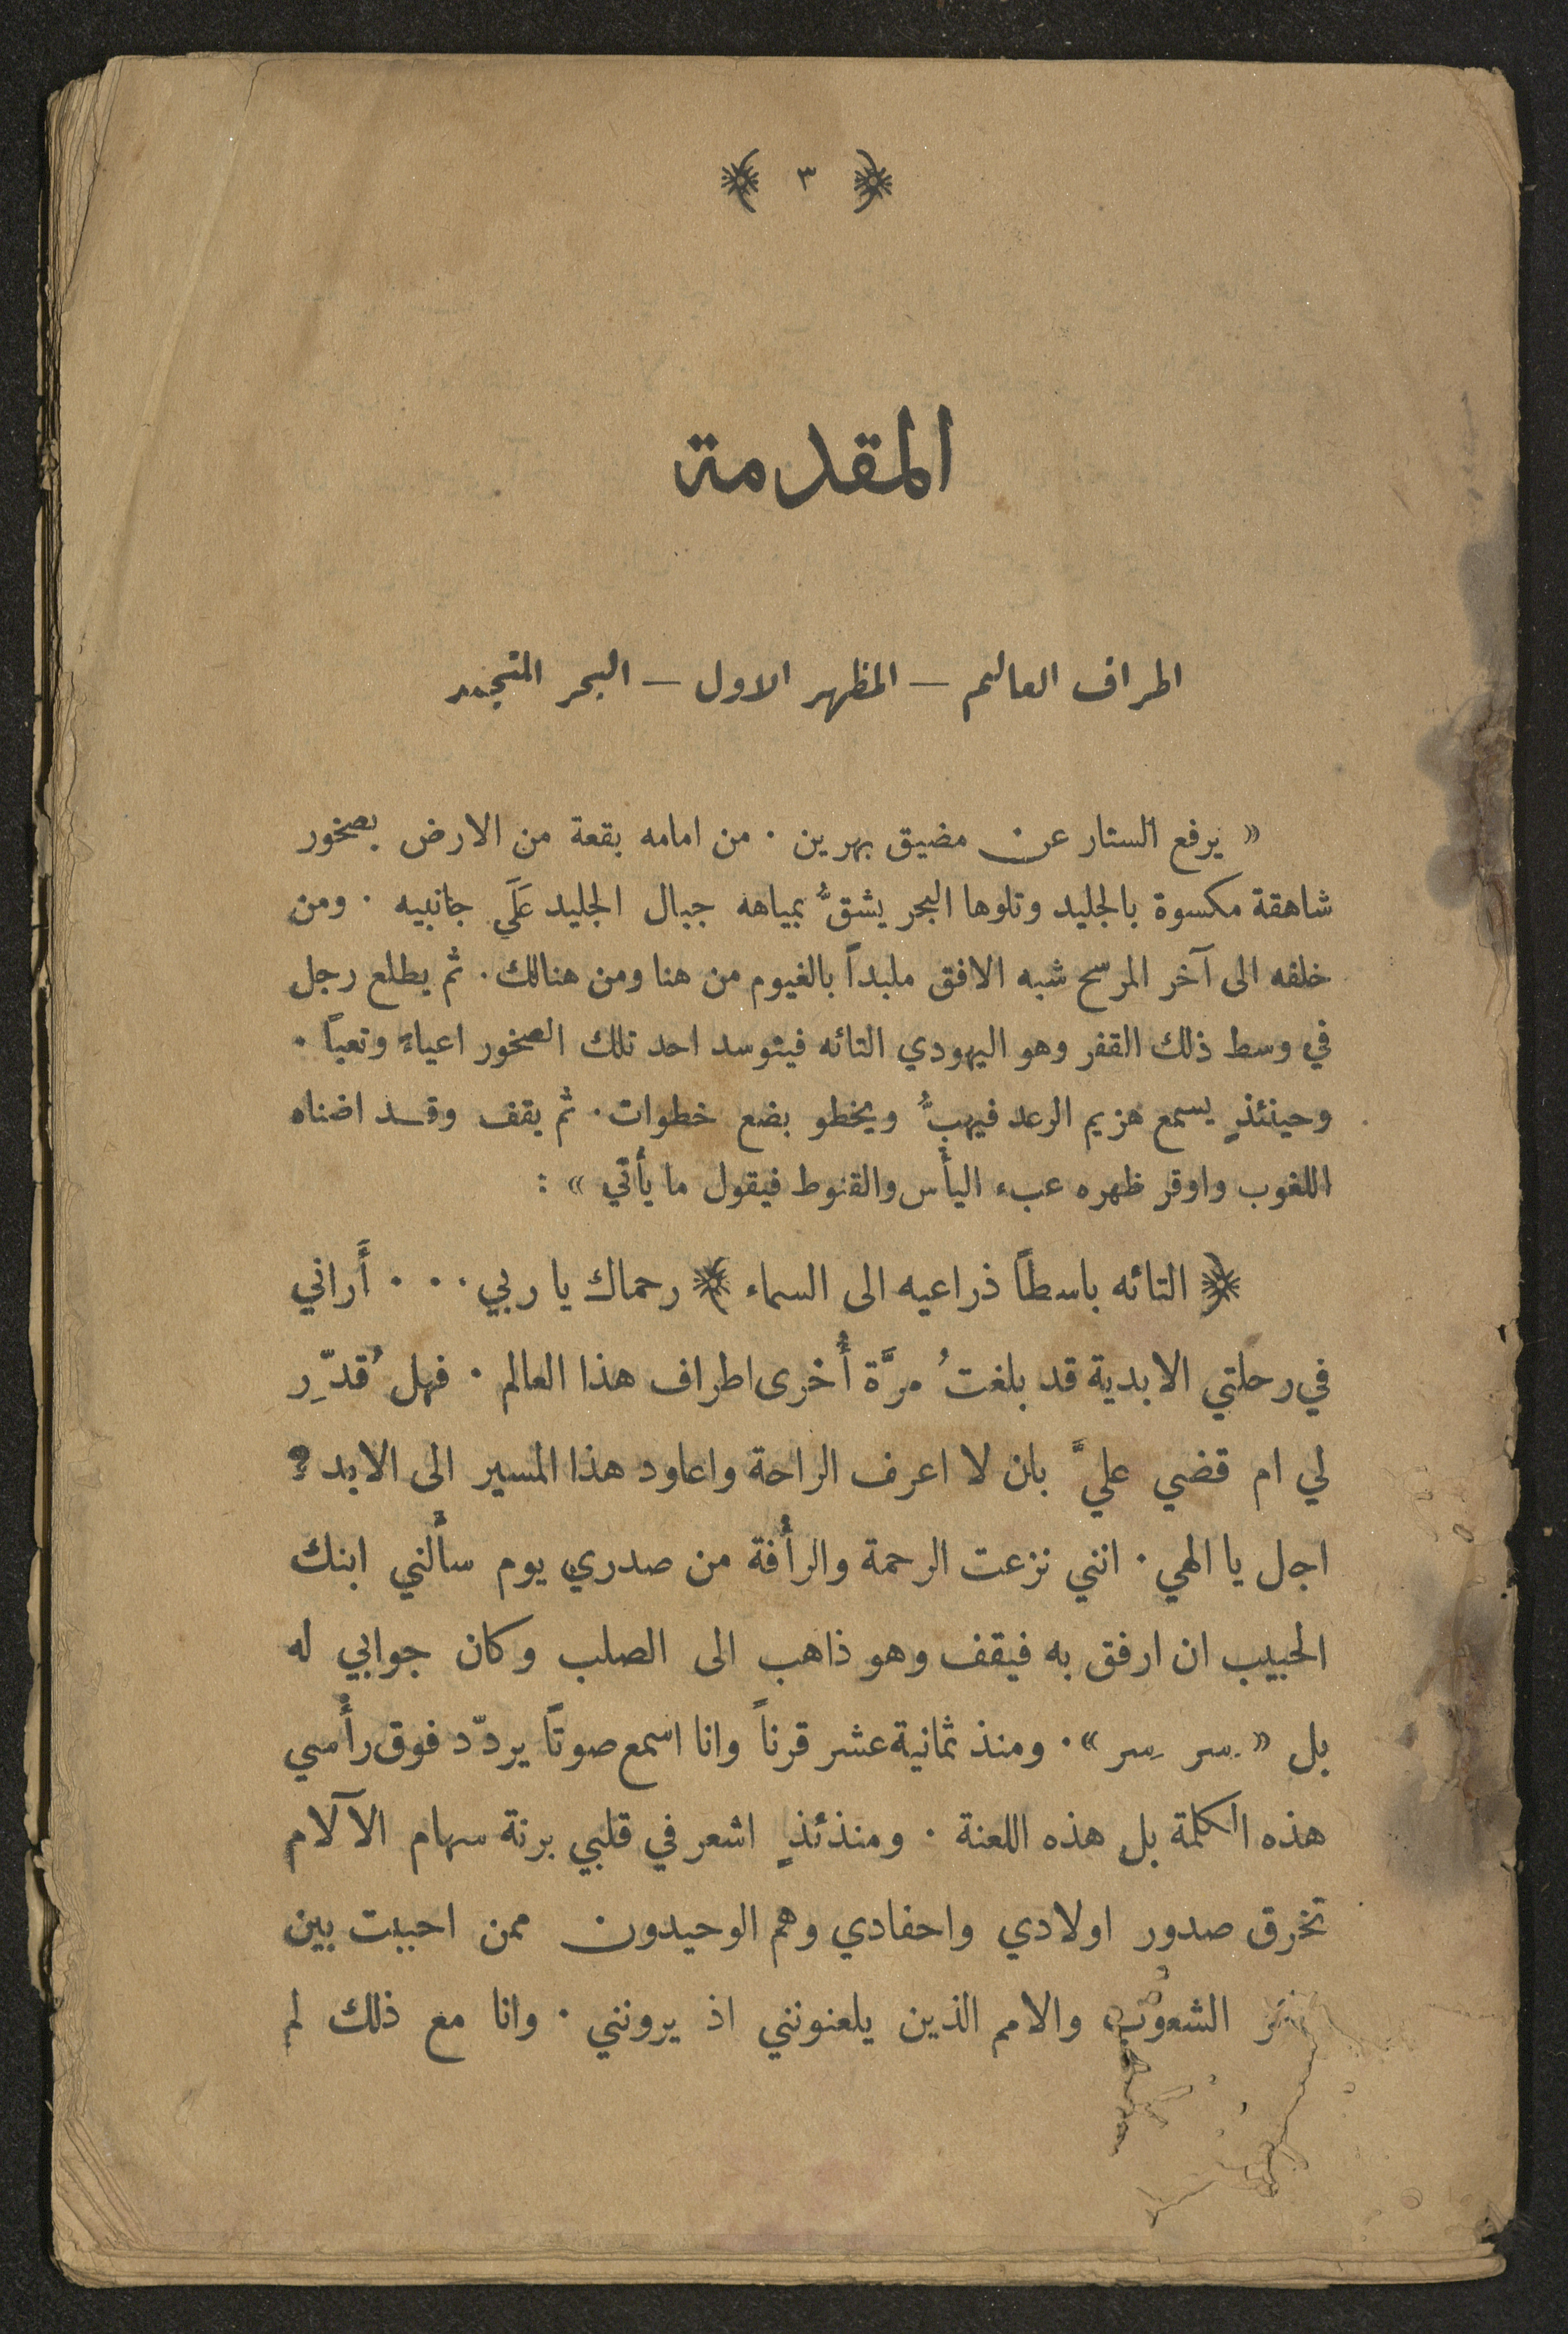 ﴿ ٣ ﴾
المقدمة
اطراف العالم — المظهر الاول — البحر المتجمد
« يرفع الستار عن مضيق بهرين . من امامه بقعة من الارض بصخور
شاهقة مكسوة بالجليد وتلوها البحر يشقُّ بمياهه جبال الجليد عَلَى جانبيه . ومن
خلفه الى آخر المرسح شبه الافق ملبداً بالغيوم من هنا ومن هنالك . ثم يطلع رجل
في وسط ذلك القفر وهو اليهودي التائه فيتوسد احد تلك الصخور اعياءً وتعباً .
وحينئذٍ يسمع هزيم الرعد فيهبُّ ويخطو بضع خطوات . ثم يقف وقد اضناه
اللغوب واوقر ظهره عبء اليأْس والقنوط فيقول ما يأْتي » :
﴿ التائه باسطاً ذراعيه الى السماء ﴾ رحماك يا ربي . . . أَراني
في رحلتي الابدية قد بلغتُ مرَّة أُخرى اطراف هذا العالم . فهل قُدّرِ
لي ام قضي عليَّ بان لا اعرف الراحة واعاود هذا المسير الى الابد ؟
اجل يا الهي . انني نزعت الرحمة والرأْفة من صدري يوم سأَلني ابنك
الحبيب ان ارفق به فيقف وهو ذاهب الى الصلب وكان جوابي له
بل « سِر سِر » . ومنذ ثمانية عشر قرناً وانا اسمع صوتاً يردّد فوق رأْسي
هذه الكلمة بل هذه اللعنة . ومنذئذٍ اشعر في قلبي برنة سهام الآلام
تخرق صدور اولادي واحفادي وهم الوحيدون ممن احببت بين
الشعوب والامم الذين يلعنونني اذ يرونني . وانا مع ذلك لم